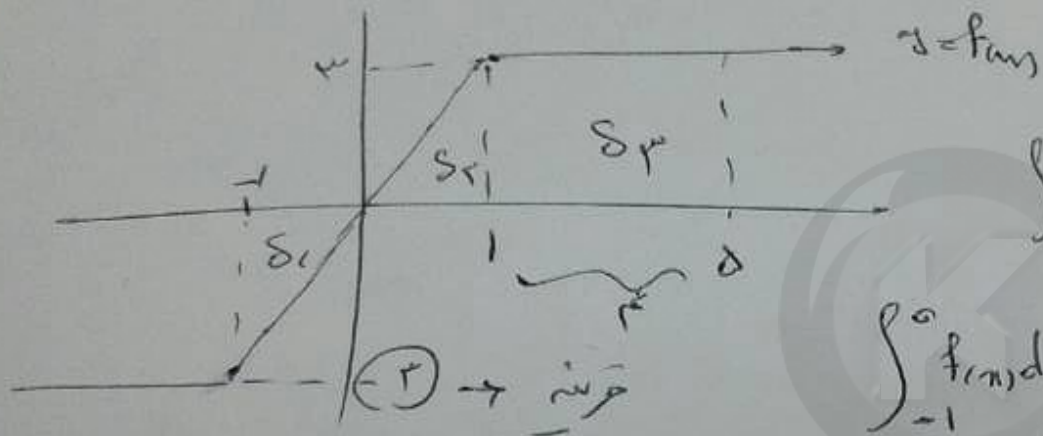 ۳
y = f(x)
S۲ S۳
-1
S۱
1 ۵
۴
∫
-۳ → قرینه
∫₋₁⁰ f(x)d